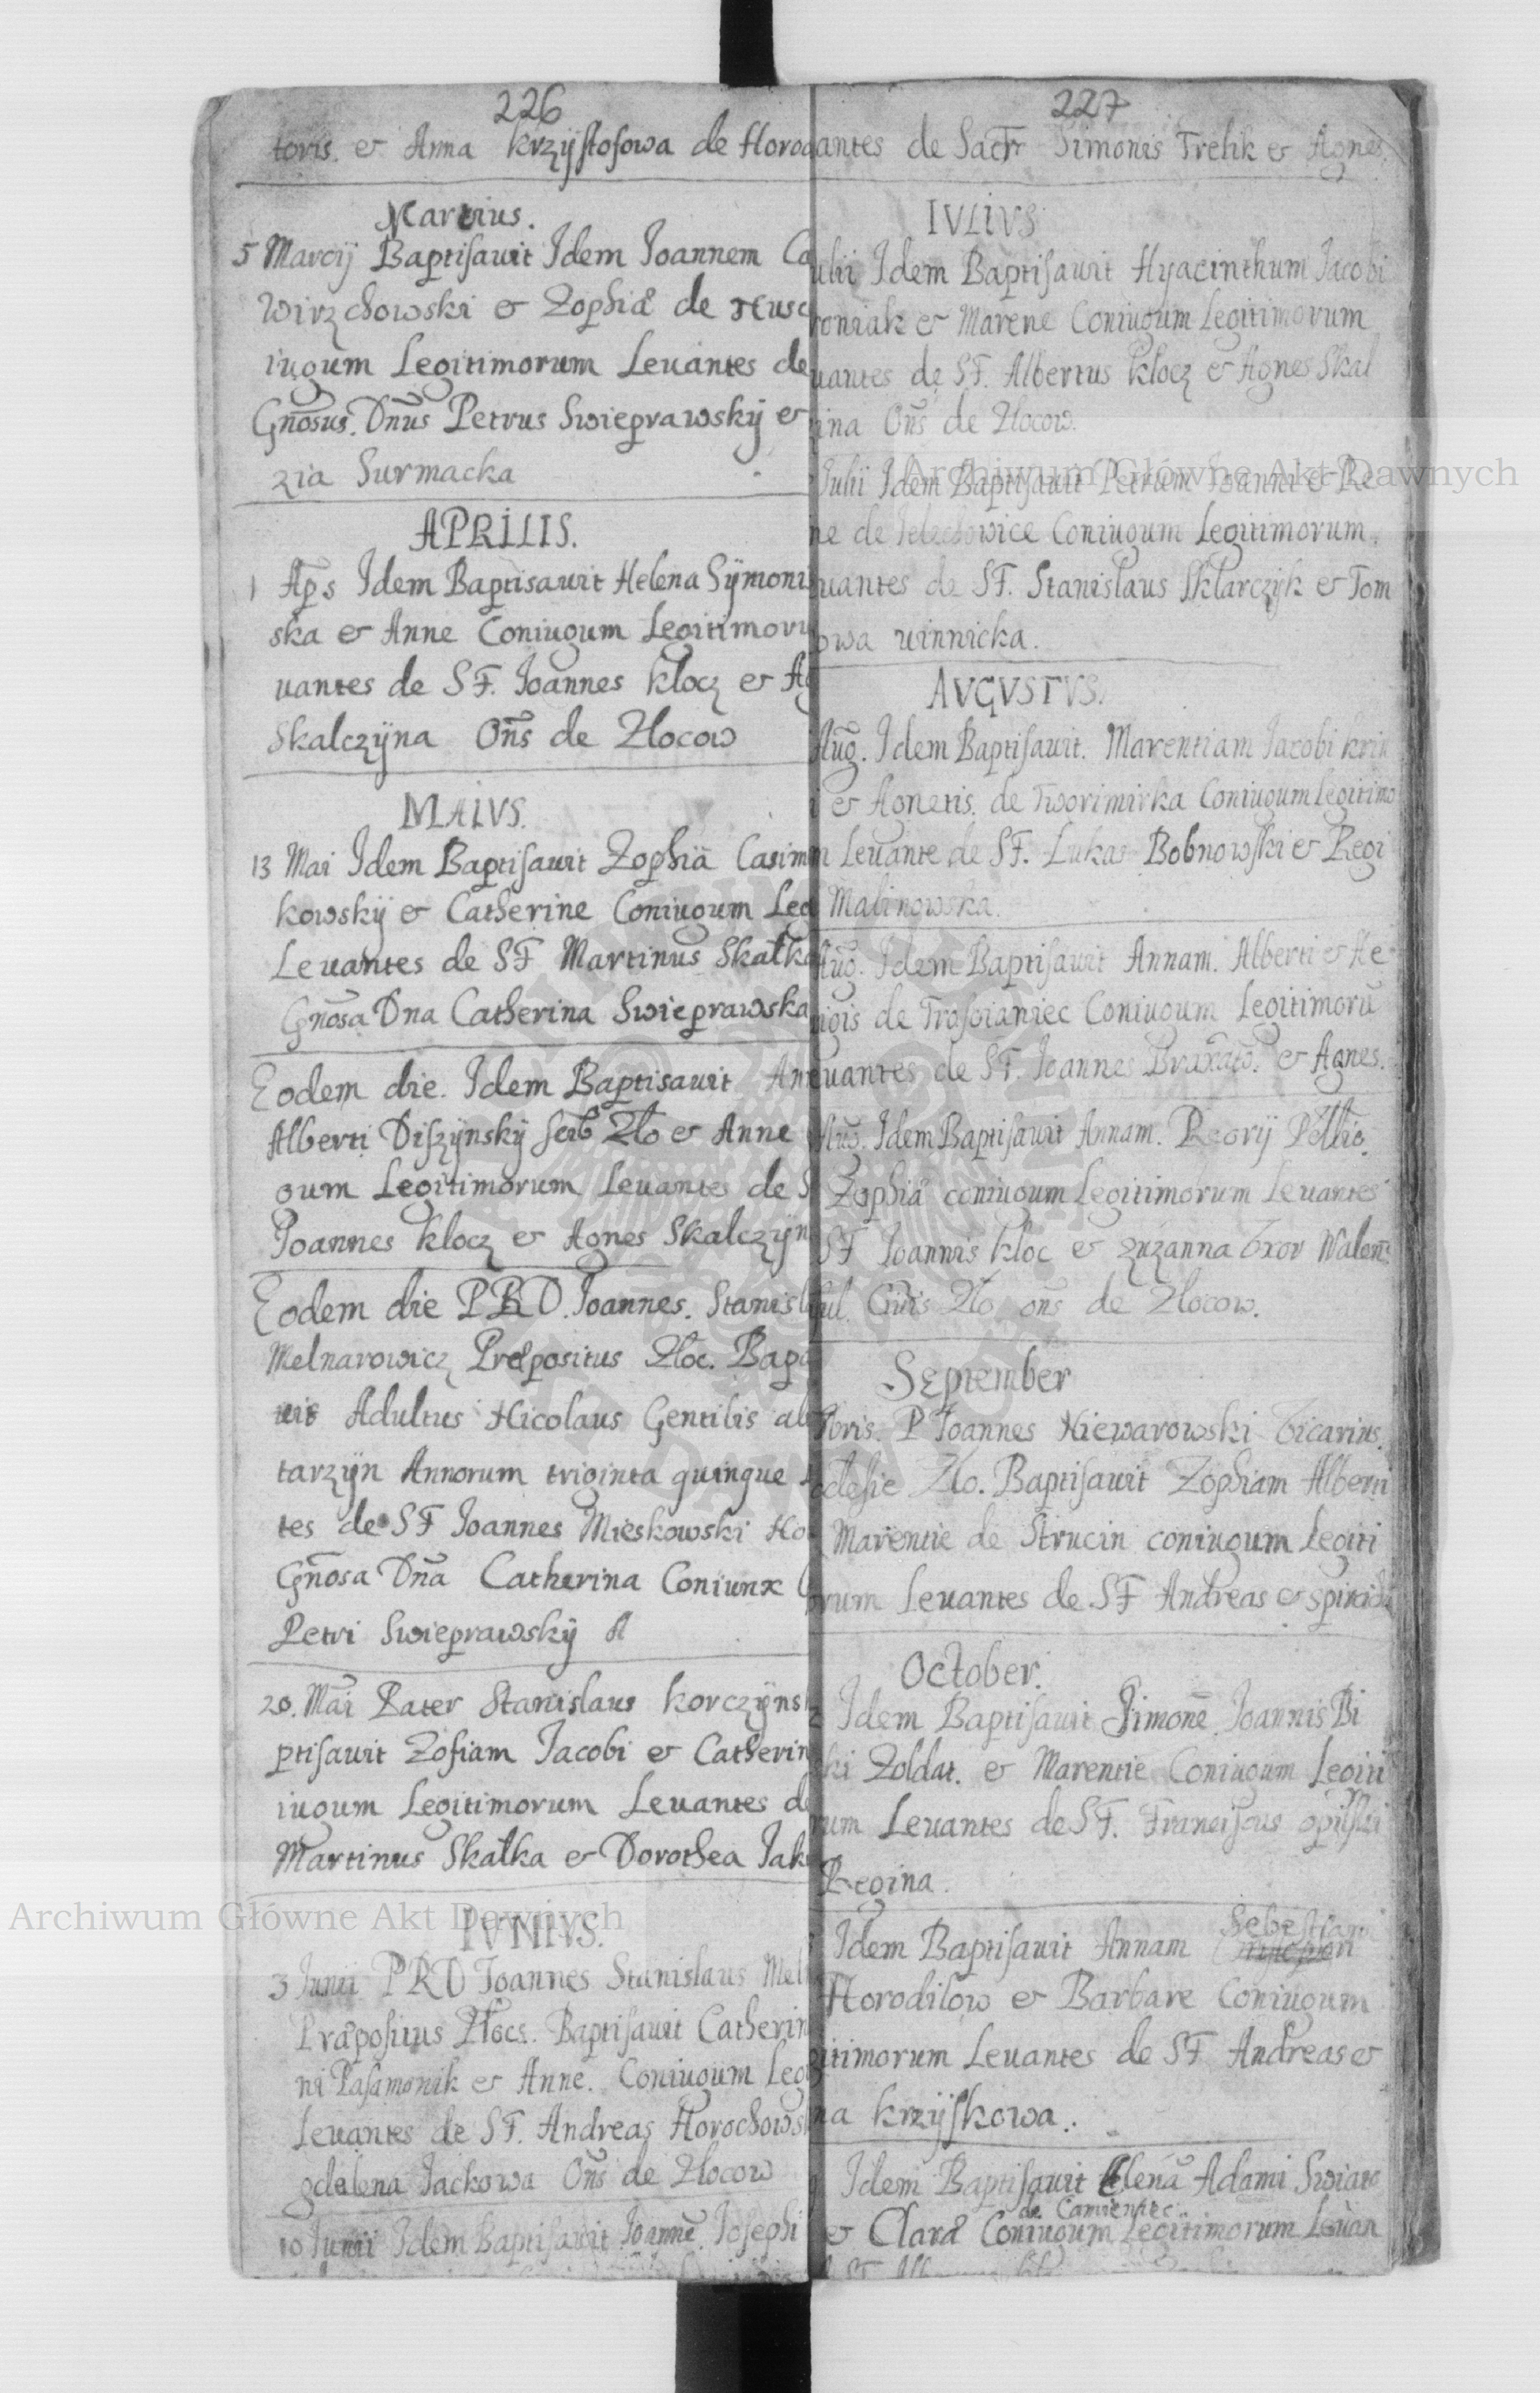 226
toris. et Anna Krzysztofowa de Horod
Martius.
5 Marcij Baptisavit Idem Joannem Ca
Wirzchowski et Zophiæ de Husc
iugum Legitimorum Levantes de
Gnosus. Dnus Petrus Swieprawskÿ et
zia Surmacka
APRILIS.
1 Aps Idem Baptisavit Helena Sÿmonis
ska et Anne Coniugum Legitimoru
vantes de S F. Joannes Klocz et Ag
Skalczÿna Ons de Zlocow
MAIVS.
13 Mai Idem Baptisavit Zophiā Casim
kowskÿ et Catherine Coniugum Leg
Levantes de S F Martinus Skałka
Gnosa Dna Catherina Swieprawska
Eodem die. Idem Baptisavit An
Alberti Diszÿnskÿ scrib Zlo et Anne
gum Legitimorum Levantes de S
Joannes Klocz et Agnes Skalczÿn
Eodem die P R D. Joannes. Stanisl
Melnarowicz Præpositus Zloc. Bapt
vit Adultus Nicolaus Gentilis ab
tarzÿn Annorum triginta quinque
tes de S F Joannes Mieskowski Ho
Gnosa Dna Catherina Coniunx
Petri Swieprawskÿ
20. Mai Pater Stanislaus Korczÿnsk
ptisavit Zofiam Jacobi et Catherin
iugum Legitimorum Levantes de
Martinus Skałka et Dorothea Jak
IVNIVS.
3 Junii P R D Joannes Stanislaus Mel
Præpositus Złocs. Baptisavit Catherin
ni Pasamonik et Anne. Coniugum Leg
Levantes de S F. Andreas Horochows
gdalena Jackowa Ons de Zlocow
10 Junii Idem Baptisavit Joannē Josephi
227
antes de Sacr Simonis Trelik et Agnes.
IVLIVS
ulii Idem Baptisavit Hyacinthum Jacobi
roniak et Marene Coniugum Legitimorum
vantes de S F. Albertus Klocz et Agnes Skal
ina Ons de Zlocow.
Julii Idem Baptisavit Petrum Joanni et Re
ne de Jelechowice Coniugum Legitimorum.
vantes de S F. Stanislaus Sklarczÿk et Tom
owa winnicka.
AVGVSTVS.
Aug. Idem Baptisavit. Marentiam Jacobi krin
i et Agnetis. de Tworimirka Coniugum Legitimo
m Levante de S F. Lukas Bobnowski et Regi
Malinowska.
Aug. Idem Baptisavit Annam. Alberti et He
wigis de Troscianiec Coniugum Legitimorū
evantes de S F. Joannes Braxato. et Agnes.
Aug. Idem Baptisavit Annam. Regrij Pellio.
Zophiæ coniugum Legitimorum Levantes
S F Joannis Kloc et zuzanna vxor Walent
ful. Civis Zlo ons de Zlocow.
September
bris. P Joannes Niewarowski Vicarius.
cclesie Zlo. Baptisavit Zophiam Alberti
Marentie de Strucin coniugum Legiti
orum Levantes de S F Andreas et spirid
October.
Idem Baptisavit Simonē Joannis Bi
ki Zoldat. et Marentie Coniugum Legiti
rum Levantes de S F. Franciscus opilski
Regina.
Idem Baptisavit Annam Sebestiani
Horodilow et Barbare Coniugum
gitimorum Levantes de S F Andreas et
na krzÿskowa.
Idem Baptisavit Elenā Adami Swiat
de Camieniec
et Claræ Coniugum Legitimorum Levan
Archiwum Główne Akt Dawnych
Archiwum Główne Akt Dawnych